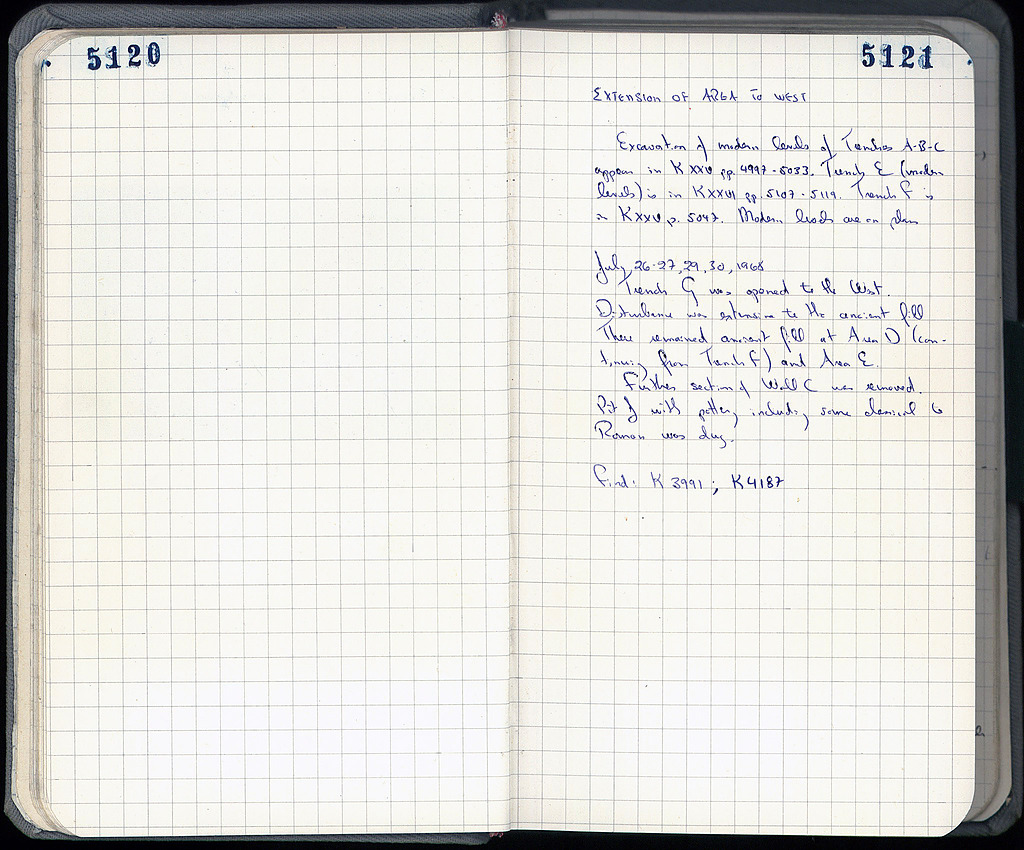 5120
5121
EXTENSION OF AREA TO WEST
Excavation of modern levels of Trenches A-B-C
appear in K XXV pp. 4997-5033. Trench E (modern
levels) is in K XXVI pp. 5107-5119. Trench F is
in K XXV p. 5047. Modern levels are on plan
July 26-27, 29, 30, 1968
Trench G was opened to the West.
Disturbance was extensive to the ancient fill
There remained ancient fill at Area D (con-
tinuing from Trench F) and Area E.
Further section of Wall C was removed.
Pit J with pottery including some classical to
Roman was dug.
Find: K 3991; K 4187